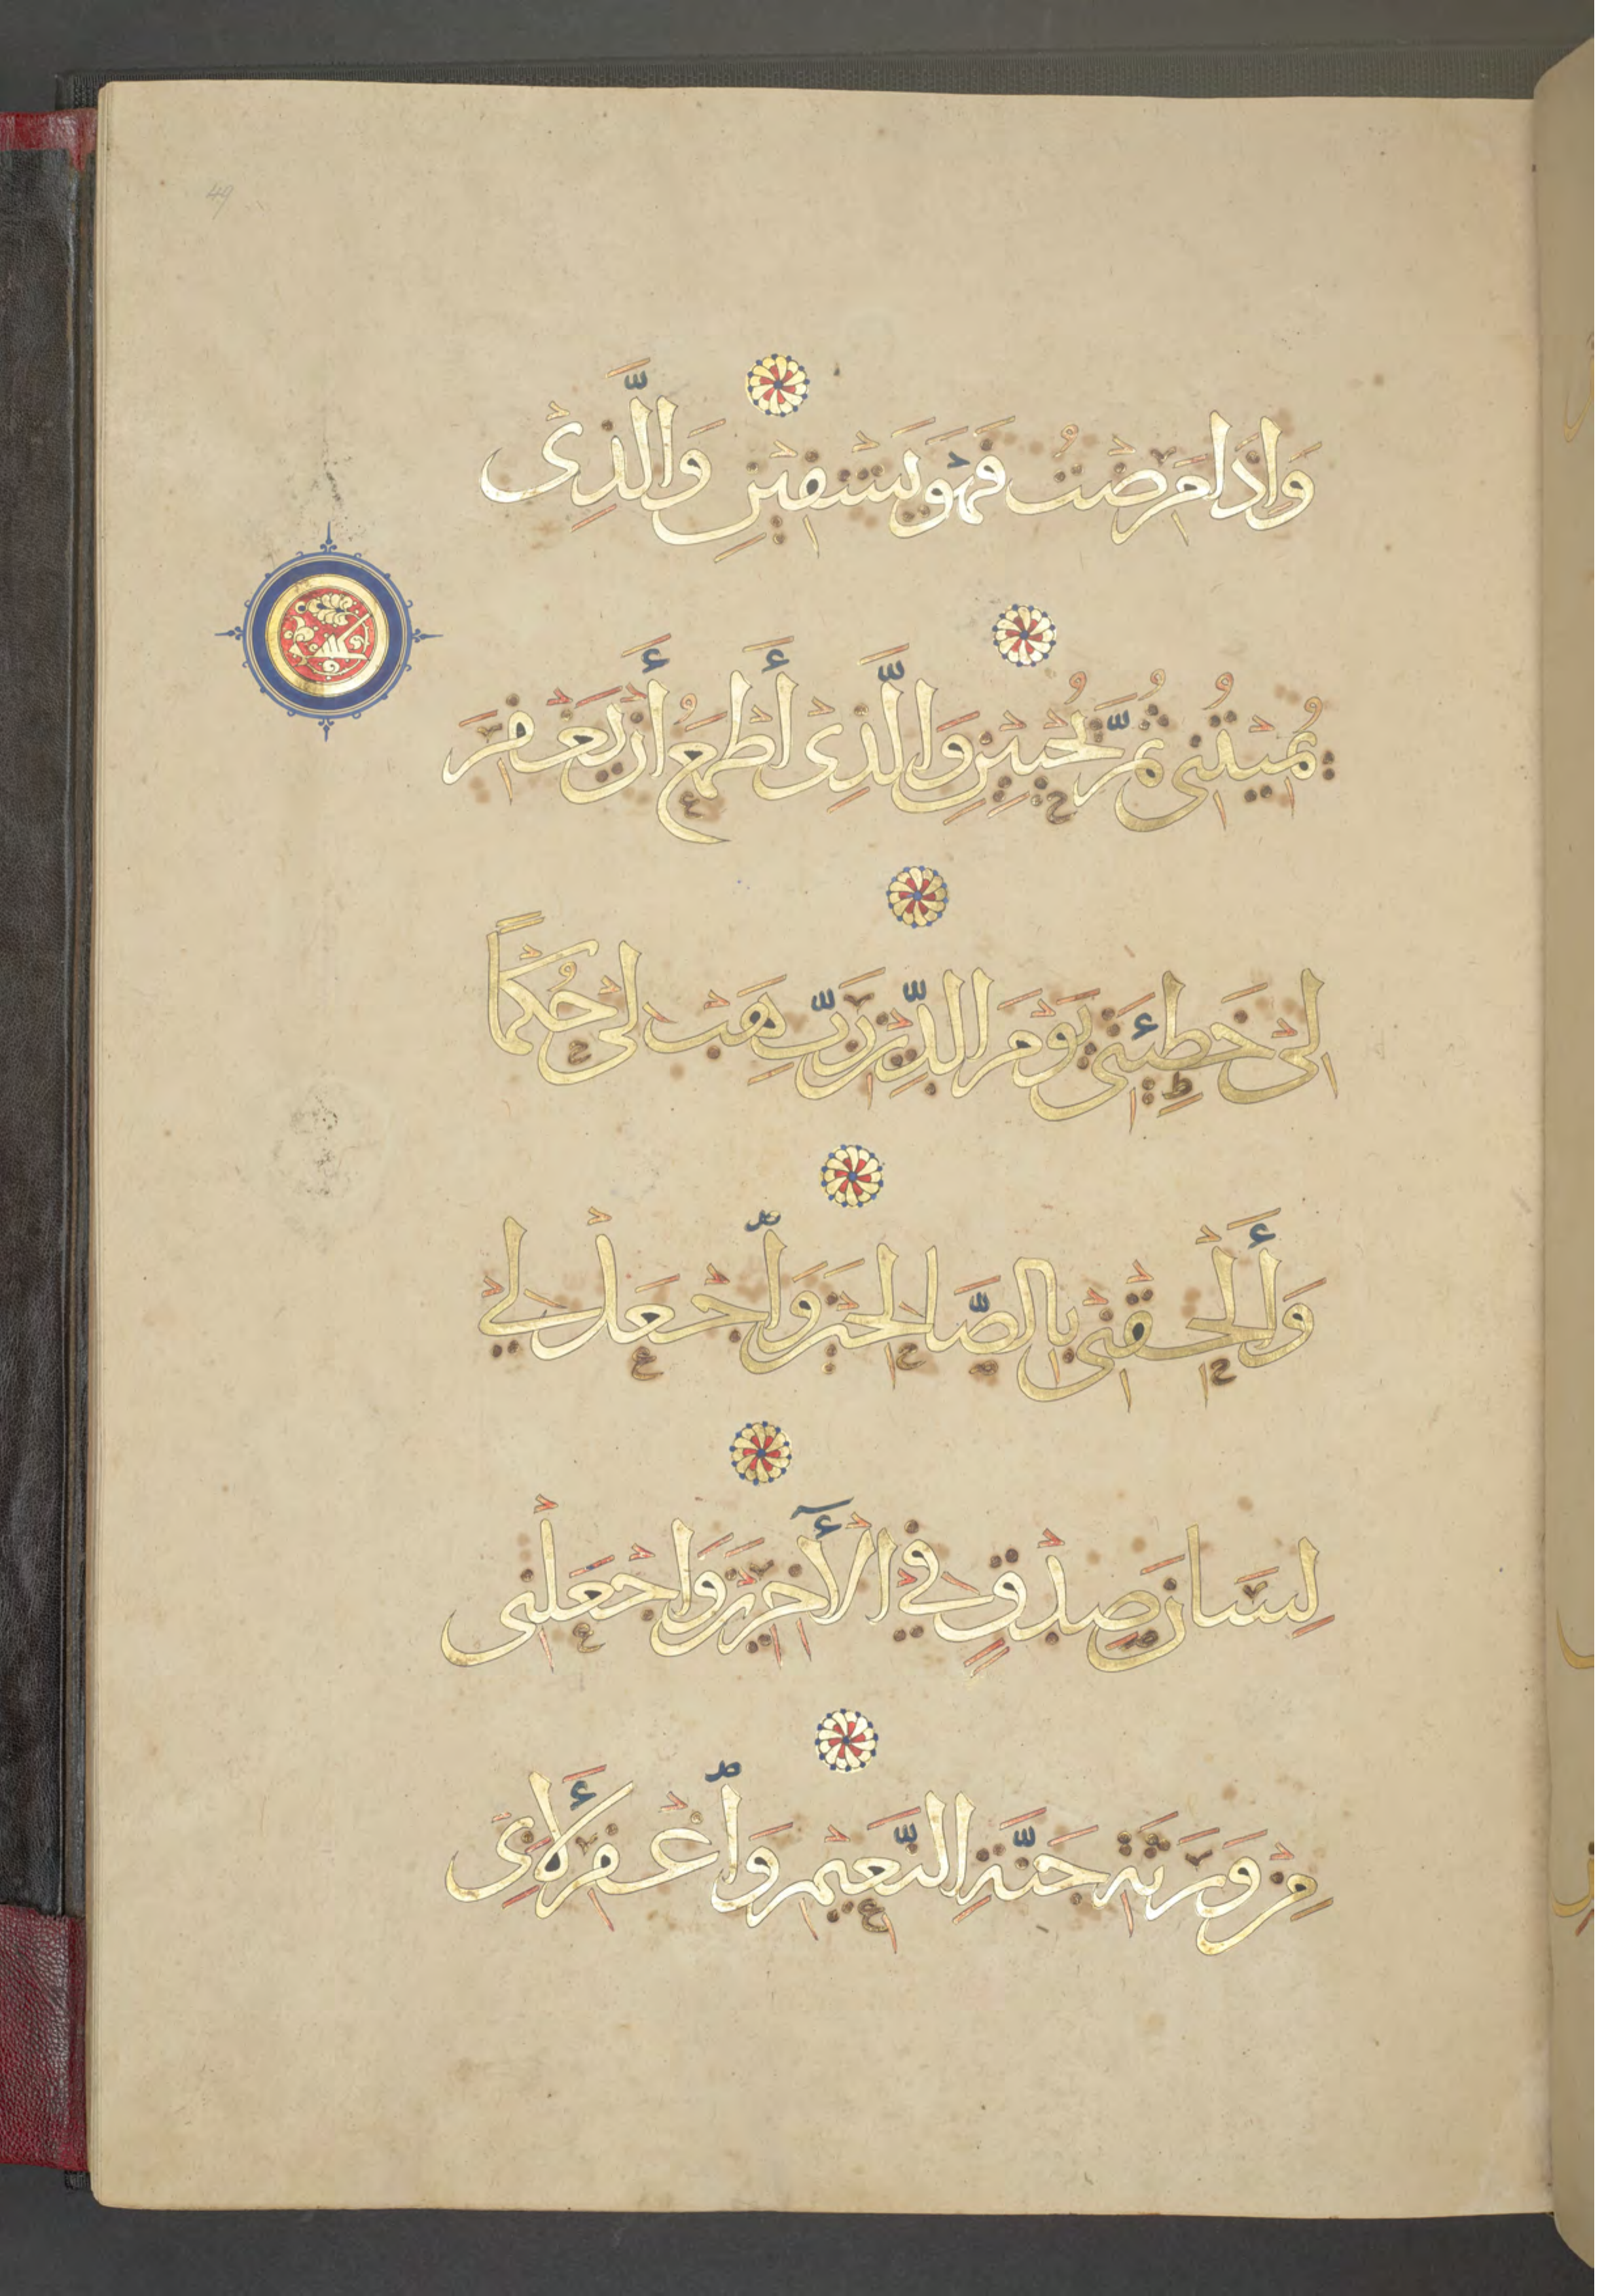 وَإِذَا مَرِضْتُ فَهْوَ يَشْفِينِ وَالَّذِى
يُمِيتُنِى ثُمَّ يُحْيِينِ وَالَّذِى أَطْمَعُ أَنْ يَغْفِرَ
لِى خَطِيئَتِى يَوْمَ الدِّينِ رَبِّ هَبْ لِى حُكْمًا
وَأَلْحِقْنِى بِالصَّالِحِينَ وَاجْعَلْ لِى
لِسَانَ صِدْقٍ فِى الْأَخِرِينَ وَاجْعَلْنِى
مِنْ وَرَثَةِ جَنَّةِ النَّعِيمِ وَاغْفِرْ لِأَبِى
49